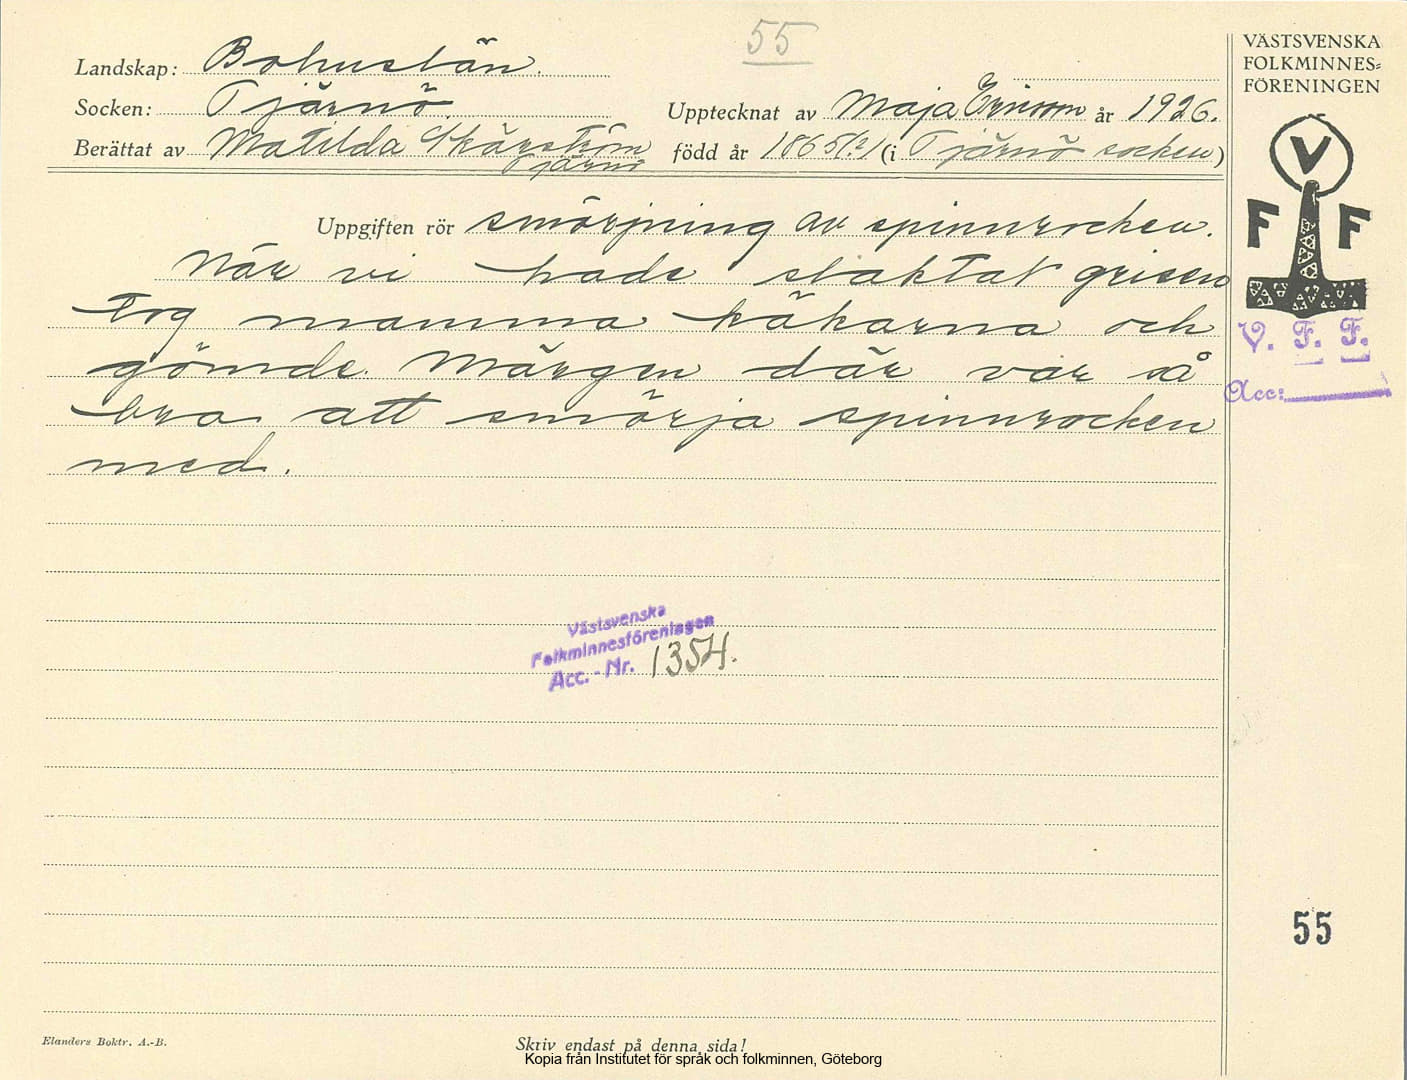 55
Landskap: Bohuslän.
Socken: Tjärnö.
Upptecknat av Maja Ericson år 1926.
Berättat av Matilda Skärström
Tjärnö
född år 1865(?) (i Tjärnö socken)
Uppgiften rör smörjning av spinnrocken.
När vi hade slaktat grisen
tog mamma käkarna och
gömde. Märgen där var så
bra att smörja spinnrocken
med.
Västsvenska
Folkminnesföreningen
Acc.-Nr. 1354.
VÄSTSVENSKA
FOLKMINNES=
FÖRENINGEN
V
F F
V. F. F.
Acc:
55
Elanders Boktr. A.-B.
Skriv endast på denna sida!
Kopia från Institutet för språk och folkminnen, Göteborg